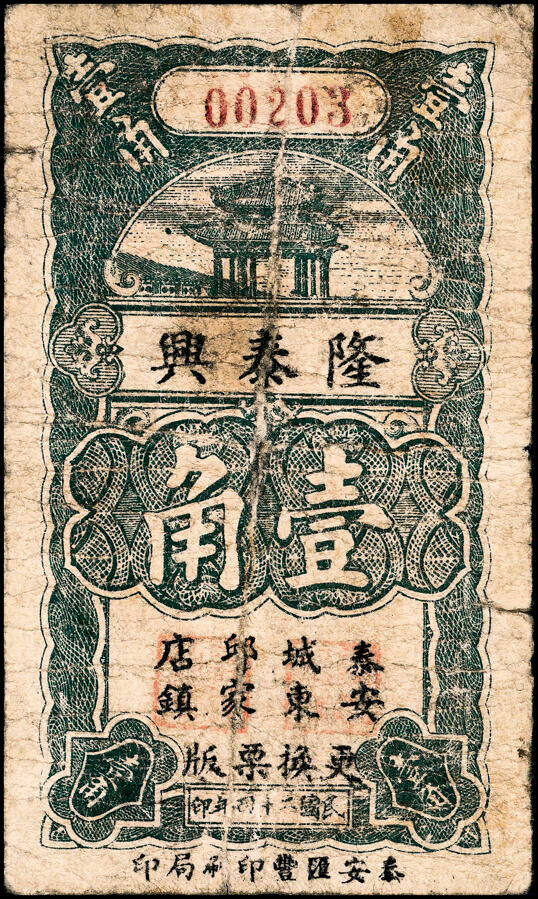 壹角
00203
壹角
隆泰興
壹角
泰安
城東
邱家
店鎮
更換票版
壹角
壹角
民國二十四年印
泰安匯豐印刷局印